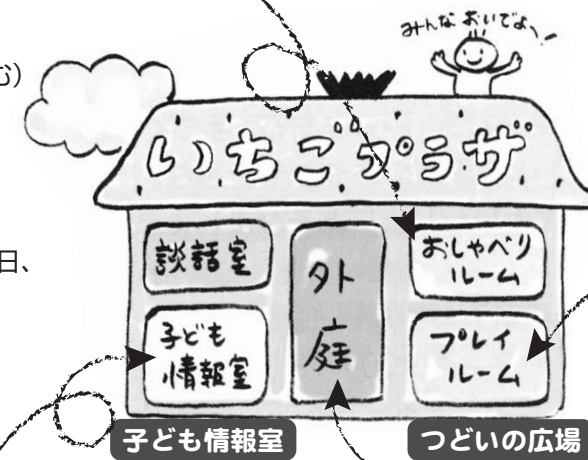 みんなおいでよ〜！
む）
いちごプラザ
日、
談話室
外庭
おしゃべり
ルーム
子ども
情報室
プレイ
ルーム
子ども情報室
つどいの広場